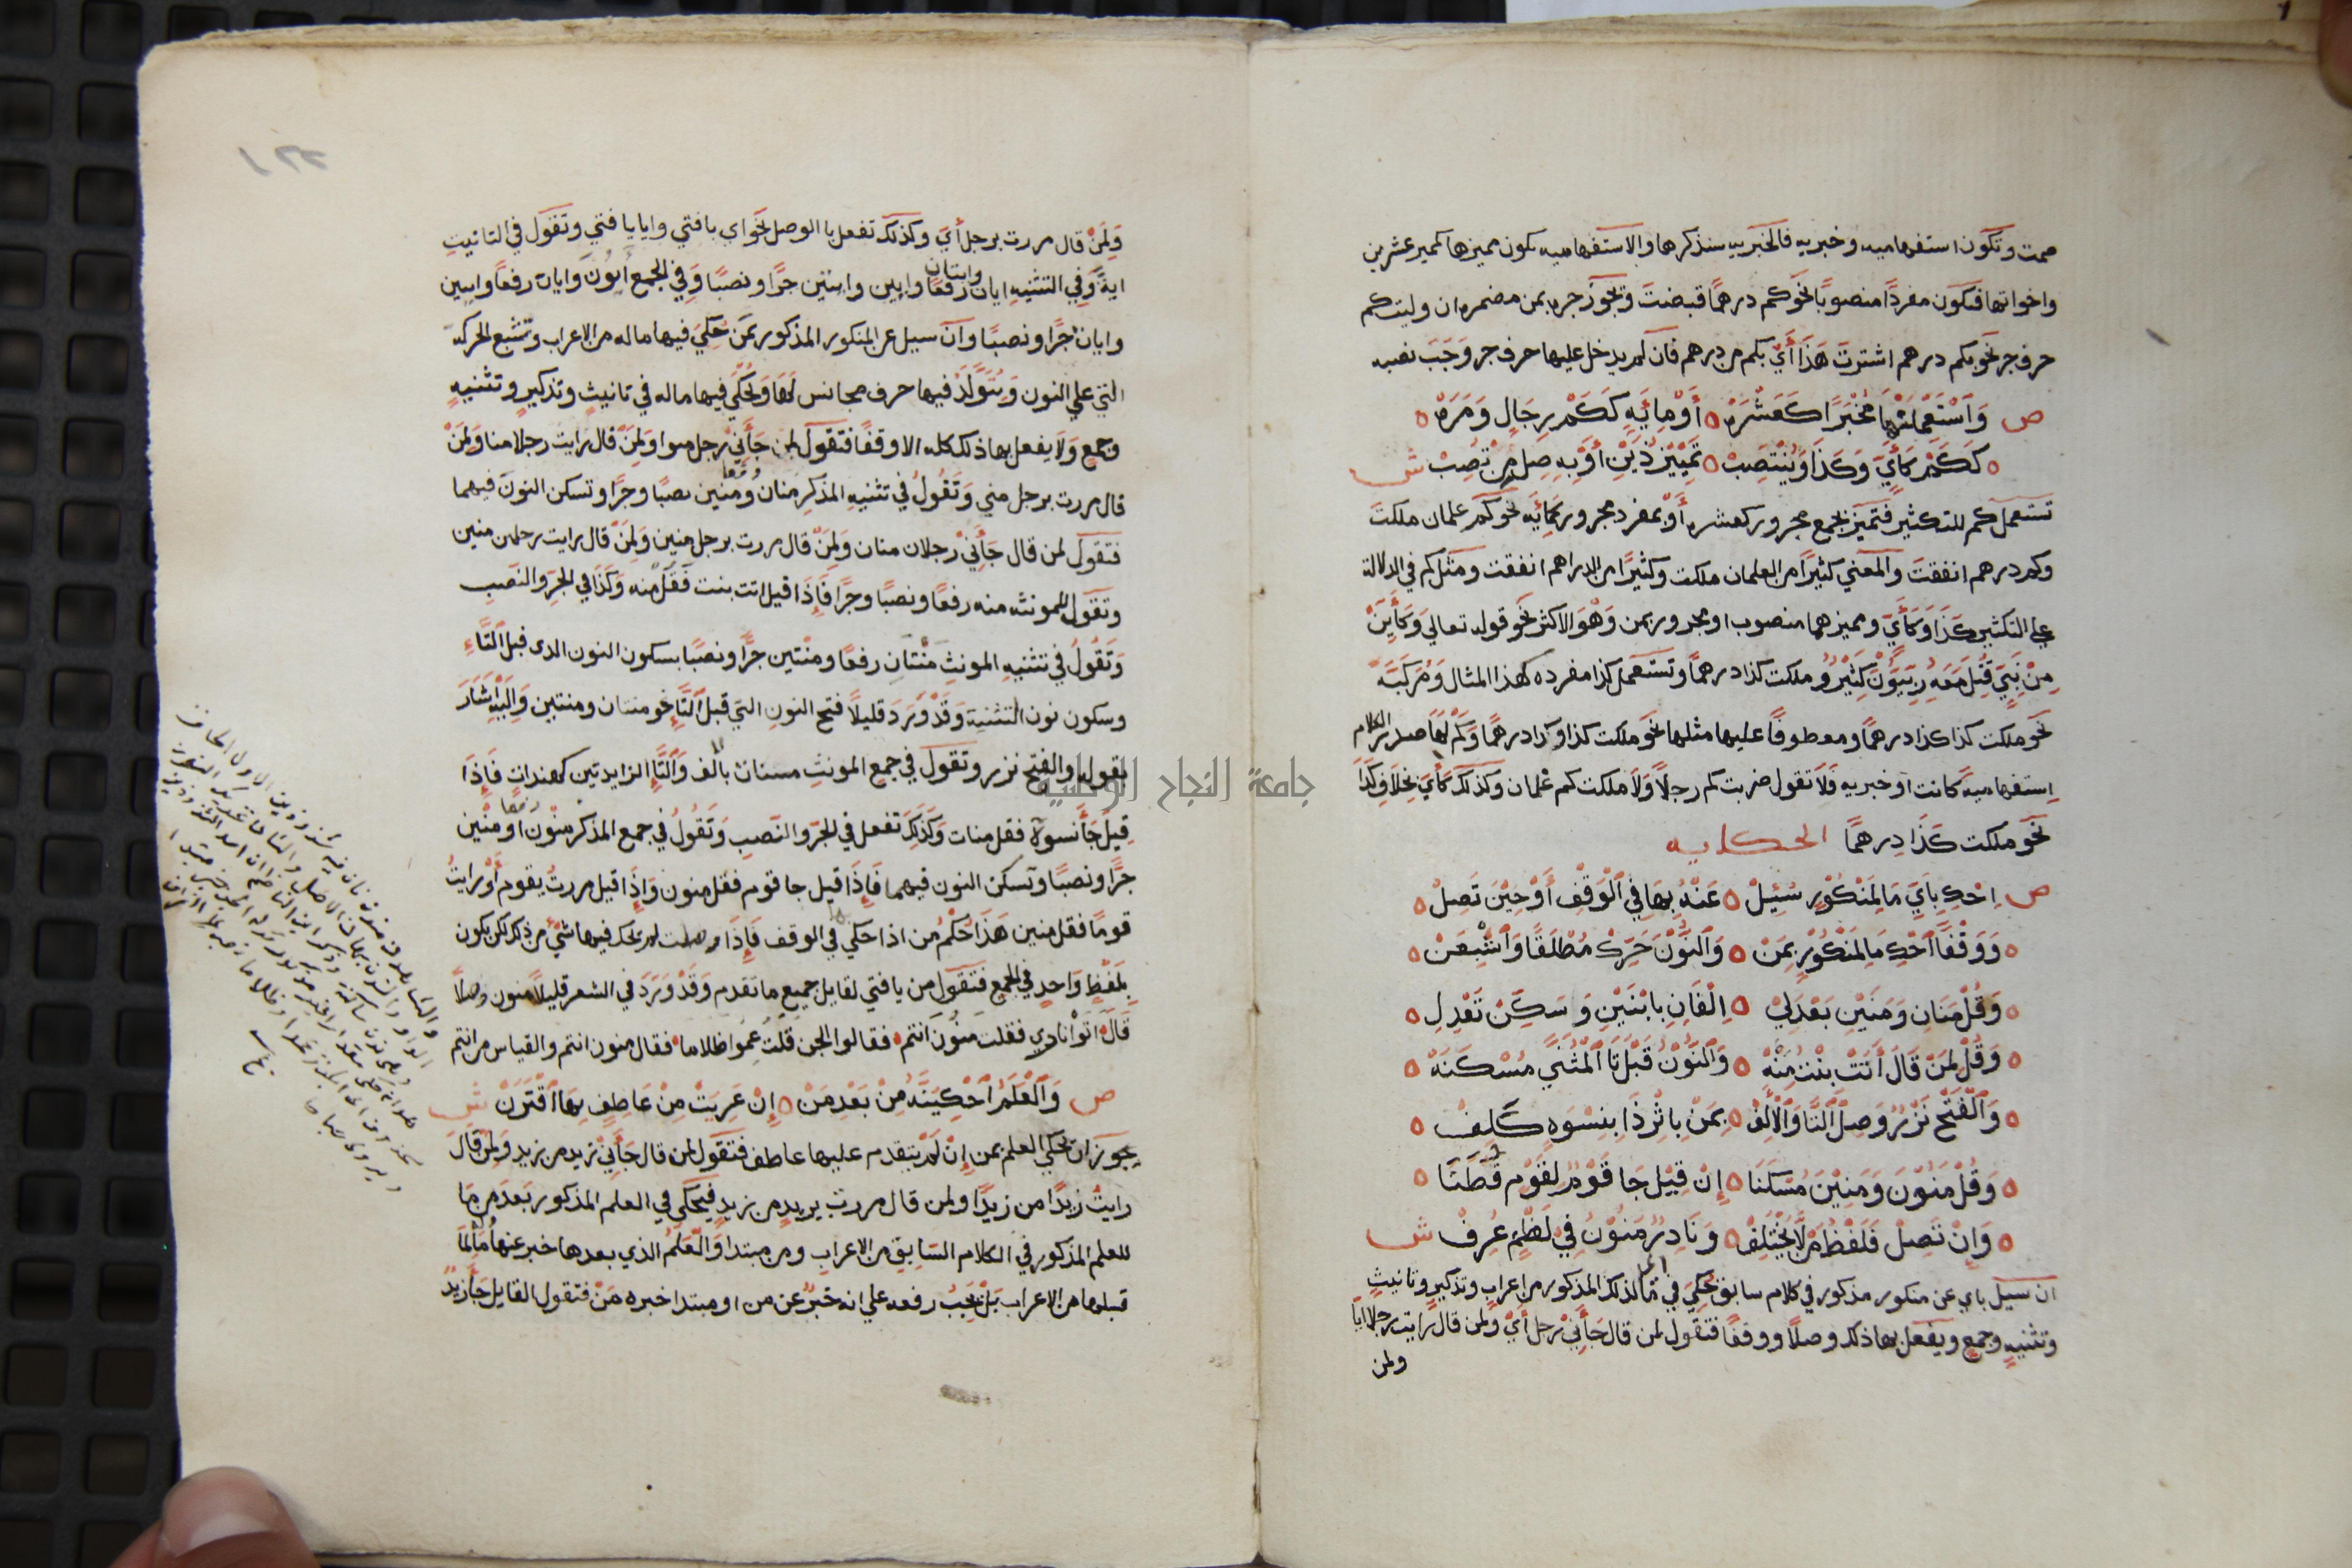 صمت وتكون استفهاميه وخبريه فالخبريه سنذكرها والاستفهاميه يكون مميزها كمميز عشرين
واخواتها فتكون مفردًا منصوبًا نحو كم درهمًا قبضت ويجوز جره بمن مضمرة ان وليت كم
حرف جر نحو بكم درهم اشتريت هذا أي بكم من درهم فان لم يدخل عليها حرف جر وجب نصبه
ص وَاسْتَعْمِلَنْهَا مُخْبِرًا كَعَشَرَه أَوْ مِائَةٍ كَكَمْ رِجَالٍ وَمَرَهْ
كَكَمْ كَأَيِّ وَكَذَا وَيُنْتَصِبْ تَمْيِيزُ ذَيْنِ أَوْ بِهِ صِلْ مِنْ تُصِبْ ش
تستعمل كم للتكثير فتميز بجمع مجرور كعشره أو بمفرد مجرور كمائة نحو كم غلمان ملكت
وكم درهم انفقت والمعني كثيرًا من الغلمان ملكت وكثيرًا من الدراهم انفقت ومثل كم في الدلالة
علي التكثير كذا وكأيّ ومميزهما منصوب او مجرور بمن وهو الاكثر نحو قوله تعالي وَكَأَيِّنْ
مِنْ نَبِيٍّ قُتِلَ مَعَهُ رِبِّيُّونَ كَثِيرٌ وملكت كذا درهمًا وتستعمل كذا مفرده كهذا المثال ومركبة
نحو ملكت كذا كذا درهمًا ومعطوفًا عليها مثلها نحو ملكت كذا وكذا درهمًا وكم لها صدر الكلام
استفهاميه كانت او خبريه فلا تقول ضربت كم رجلاً ولا ملكت كم غلمان وكذلك كأيّ بخلاف كذا
نحو ملكت كذا درهمًا الحكايه
ص اِحْكِ بِأَيٍّ مَا لِمَنْكُوْرٍ سُئِلْ عَنْهُ بِهَا فِي الْوَقْفِ أَوْ حِيْنَ تَصِلْ
وَوَقْفًا احْكِ مَا لِمَنْكُوْرٍ بِمَنْ وَالنُّوْنَ حَرِّكْ مُطْلَقًا وَأَشْبِعَنْ
وَقُلْ مَنَانِ وَمَنَيْنِ بَعْدَ لِيْ اِلْفَانِ بِابْنَيْنِ وَسَكِّنْ تَعْدِلِ
وَقُلْ لِمَنْ قَالَ أَتَتْ بِنْتٌ مَنَهْ وَالنُّوْنُ قَبْلَ تَا الْمُثَنَّى مُسْكَنَهْ
وَالْفَتْحُ نَزْرٌ وَصِلِ التَّا وَالْأَلِفْ بِمَنْ بِاثْرِ ذَا بِنِسْوَةٍ كَلِفْ
وَقُلْ مَنُوْنَ وَمَنِيْنَ مُسْكِنَا إِنْ قِيْلَ جَا قَوْمٌ لِقَوْمٍ فُطَنَا
وَإِنْ تَصِلْ فَلَفْظُ مَنْ لَا يَخْتَلِفْ وَنَادِرٌ مَنُوْنَ فِيْ نَظْمٍ عُرِفْ ش
ان سيل باي عن منكور مذكور في كلام سابق حُكِيَ في اي ما لذلك المذكور من اعراب وتذكير وتانيث
وتثنيه وجمع ويفعل بها ذلك وصلًا ووقفًا فتقول لمن قال جأني رجل أيٌّ ولمن قال رايت رجلا ايا
ولمن
١٢٢
ولمن قال مررت برجل أيّ وكذلك تفعل با الوصل نحو اي يافتي وايا يا فتي وتقول في التانيث
اية وفي التثنيه ايان وايتان رفعًا وايين وايتين جرًا ونصبًا وفي الجمع أيون وايات رفعًا وايين
وايات جرًا ونصبًا وان سيل عن المنكور المذكور بمن حُكِيَ فيها ماله من الاعراب وتشبع الحركة
التي علي النون ويتولد فيها حرف مجانس لها ويحكي فيها ماله في تانيث وتذكير وتثنيه
وجمع ولا يفعل بها ذلك كله الا وقفًا فتقول لمن جأني رجل منوا ولمن قال رايت رجلا منا ولمن
قال مررت برجل مني وتقول في تثنيه المذكر منان رفعا ومنين نصبًا وجرًا وتسكن النون فيهما
فتقول لمن قال جأني رجلان منان ولمن قال مررت برجل منين ولمن قال رايت رجلين منين
وتقول للمونثه منه رفعًا ونصبًا وجرًا فإذا قيل اتت بنت فقل منه وكذا في الجر والنصب
وتقول في تثنيه المونث منتان رفعًا ومنتين جرًا ونصبًا بسكون النون الذي قبل التاء
وسكون نون التثنية وقد ورد قليلاً فتح النون التي قبل التاء نحو منتان ومنتين واليه اشار
بقوله والفتح نزر وتقول في جمع المونث منات بالف والتاء الزايدتين كهندات فاذا
قيل جأ نسوة فقل منات وكذلك تفعل في الجر والنصب وتقول في جمع المذكر منون رفعا ومنين
جرًا ونصبًا وتسكن النون فيهما فإذا قيل جا قوم فقل منون واذا قيل مررت بقوم أو رايت
قومًا فقل منين هذا حكم من اذا حكي في الوقف فإذا وصلت لم يحك فيها شي من ذلك لكن يكون
بلفظ واحد في الجمع فتقول من يا فتي لقايل جميع ما تقدم وقد ورد في الشعر قليلاً منون وصلاً
قال اتوا نادي فقلت منون انتم فقالوا الجن قلت عموا ظلاما فقال منون انتم والقياس من انتم
ص وَالْعَلَمَ احْكِيَنَّهُ مِنْ بَعْدِ مَنْ إِنْ عَرِيَتْ مِنْ عَاطِفٍ بِهَا اقْتَرَنْ ش
يجوز ان يحكي العلم بمن إن لم يتقدم عليها عاطف فتقول لمن قال جأني زيد من زيد ولمن قال
رايت زيدًا من زيدًا ولمن قال مررت بزيد من زيد فيحكي في العلم المذكور بعد من ما
للعلم المذكور في الكلام السابق من الاعراب ومن مبتدا والعلم الذي بعدها خبر عنها
قبلها من الاعراب بل يجب رفعه علي انه خبر عن من او مبتدا خبره من فتقول القايل جأ زيد